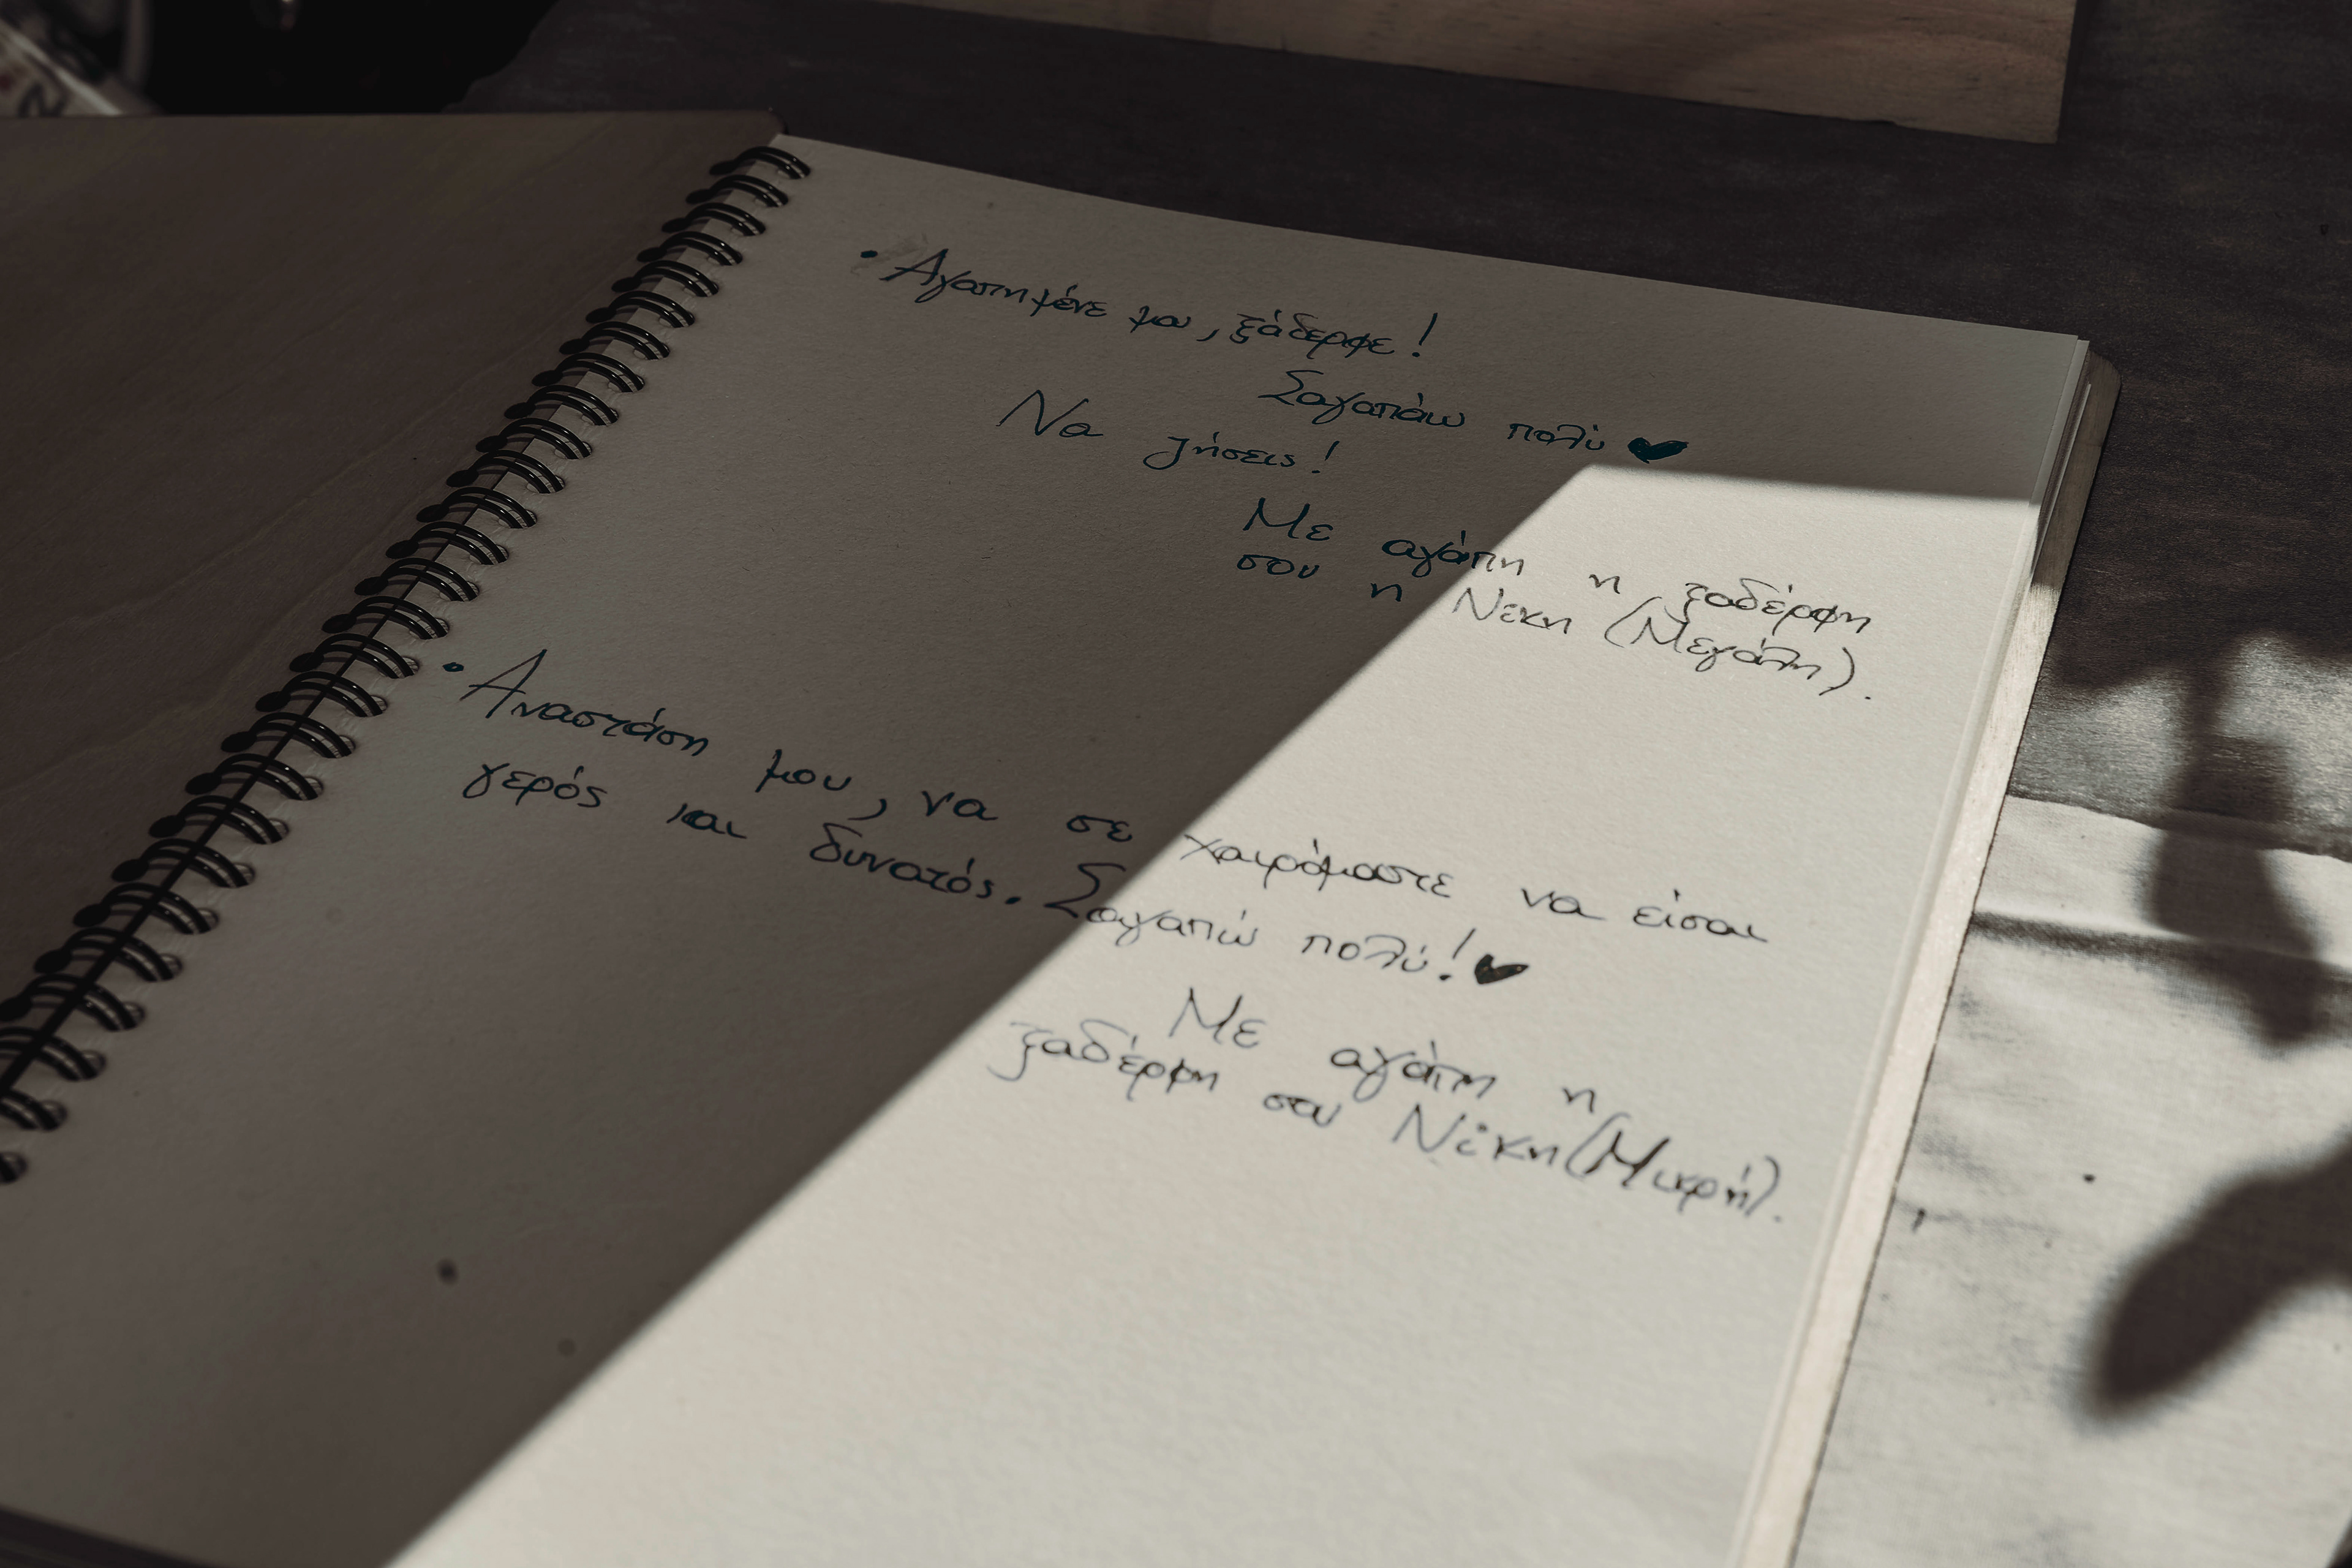 • Αγαπημένε μου, ξάδερφε!
Σαγαπάω πολύ ♥
Να ζήσεις!
Με αγάπη η ξαδέρφη
σου η Νεκη (Μεγάλη).
• Αναστάση μου, να σε χαιρόμαστε να είσαι
γερός και δυνατός. Σαγαπώ πολύ! ♥
Με αγάπη η
ξαδέρφη σου Νέκη (Μικρή).